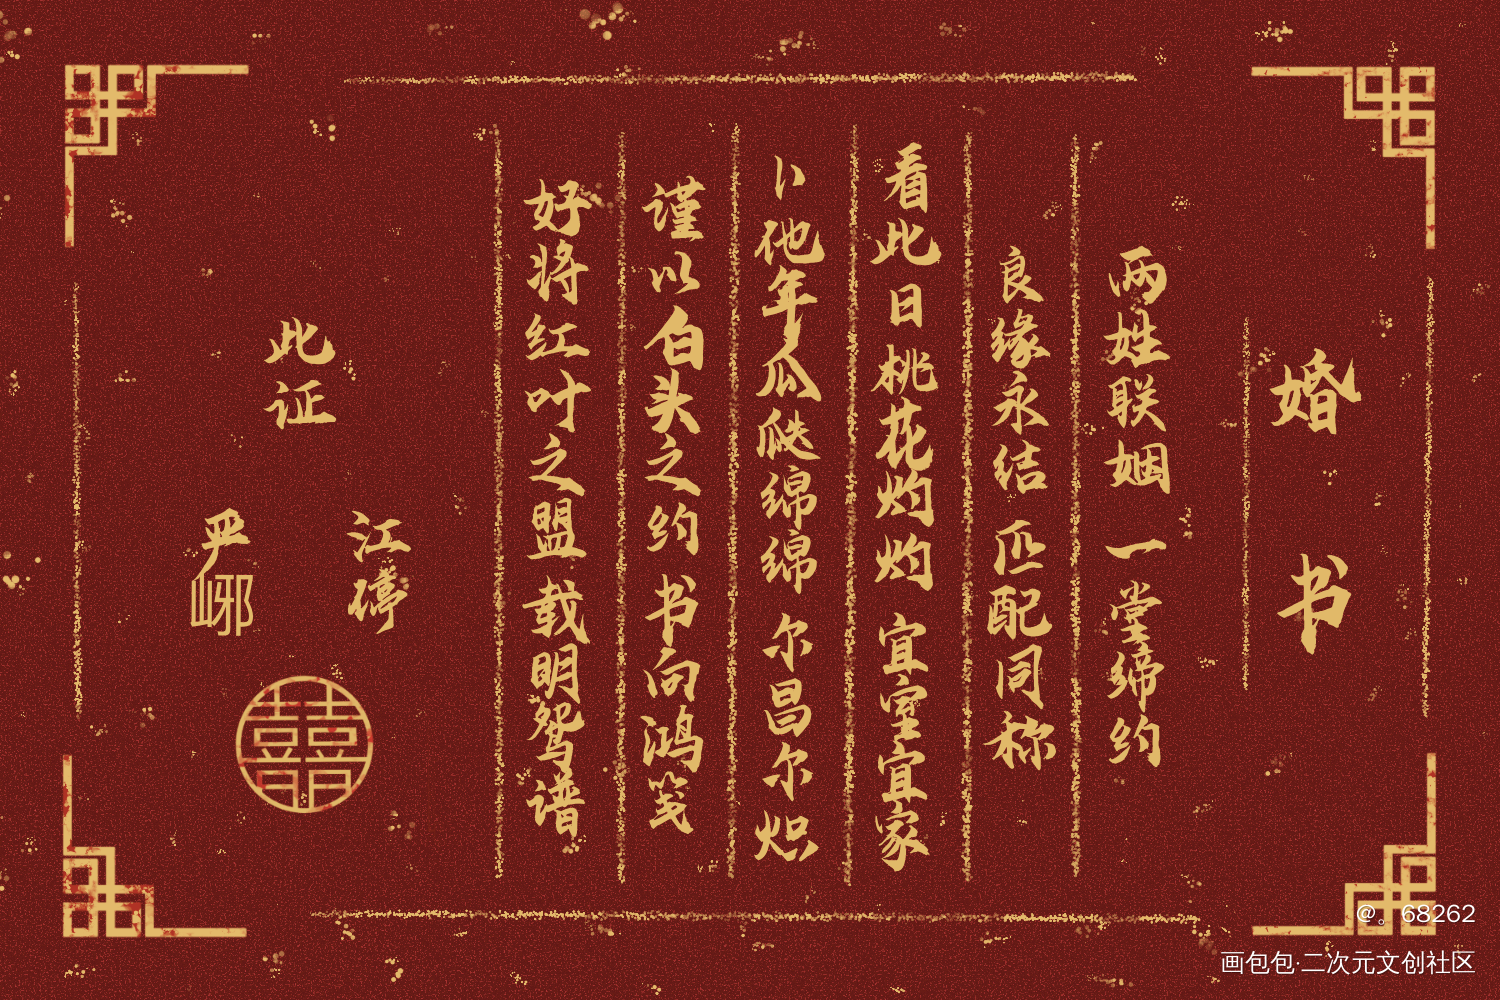 婚书
两姓联姻 一堂缔约
良缘永结 匹配同称
看此日桃花灼灼 宜室宜家
卜他年瓜瓞绵绵 尔昌尔炽
谨以白头之约 书向鸿笺
好将红叶之盟 载明鸳谱
此证
江停
严峫
囍
@。68262
画包包·二次元文创社区